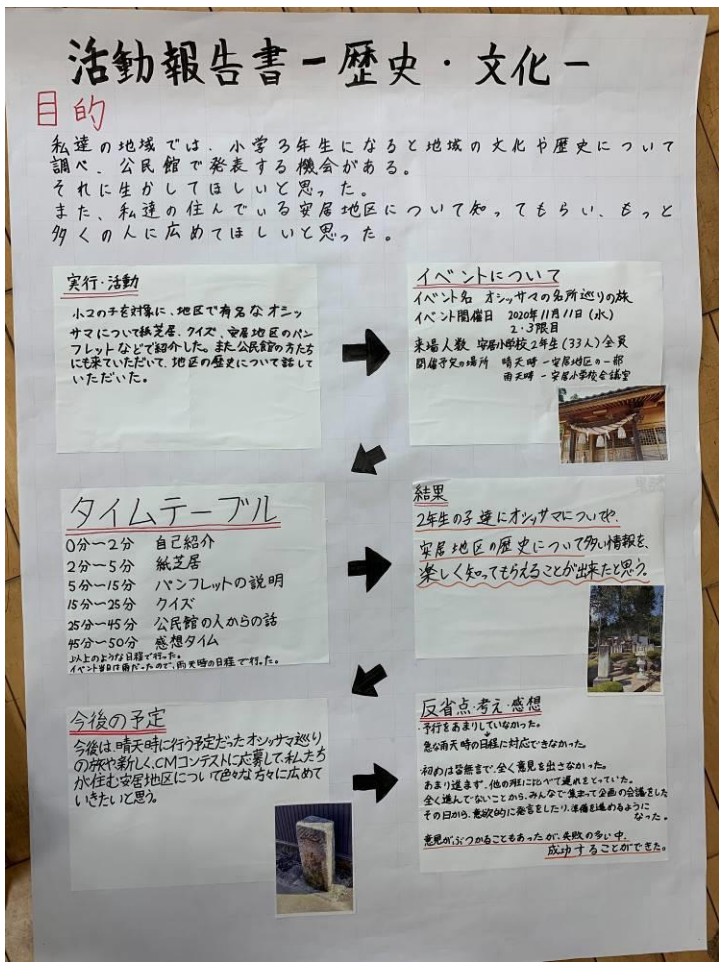 活動報告書ー歴史・文化ー
目的
私達の地域では、小学3年生になると地域の文化や歴史について
調べ、公民館で発表する機会がある。
それに生かしてほしいと思った。
また、私達の住んでいる安居地区について知ってもらい、もっと
多くの人に広めてほしいと思った。
実行・活動
小2の子を対象に、地区で有名なオシッ
サマについて紙芝居、クイズ、安居地区のパン
フレットなどで紹介した。また公民館の方たち
にも来ていただいて、地区の歴史について話して
いただいた。
イベントについて
イベント名 オシッサマの名所巡りの旅
イベント開催日 2020年11月11日(水)
2・3限目
来場人数 安居小学校2年生(33人)全員
開催予定の場所 晴天時ー安居地区の一部
雨天時ー安居小学校会議室
タイムテーブル
0分〜2分 自己紹介
2分〜5分 紙芝居
5分〜15分 パンフレットの説明
15分〜25分 クイズ
25分〜45分 公民館の人からの話
45分〜50分 感想タイム
以上のような日程で行った。
イベント当日は雨だったので、雨天時の日程で行った。
結果
2年生の子達にオシッサマについてや、
安居地区の歴史について多い情報を、
楽しく知ってもらえることが出来たと思う。
今後の予定
今後は、晴天時に行う予定だったオシッサマ巡り
の旅や新しく、CMコンテストに応募して、私たち
が住む安居地区について色々な方々に広めて
いきたいと思う。
反省点・考え・感想
・予行をあまりしていなかった。
急な雨天時の日程に対応できなかった。
初めは皆無言で、全く意見を出さなかった。
あまり進まず、他の班に比べて遅れをとっていた。
全く進んでないことから、みんなで集まって企画の会議をした
その日から、意欲的に発言をしたり、準備を進めるように
なった。
意見がぶつかることもあったが、失敗の多い中、
成功することができた。